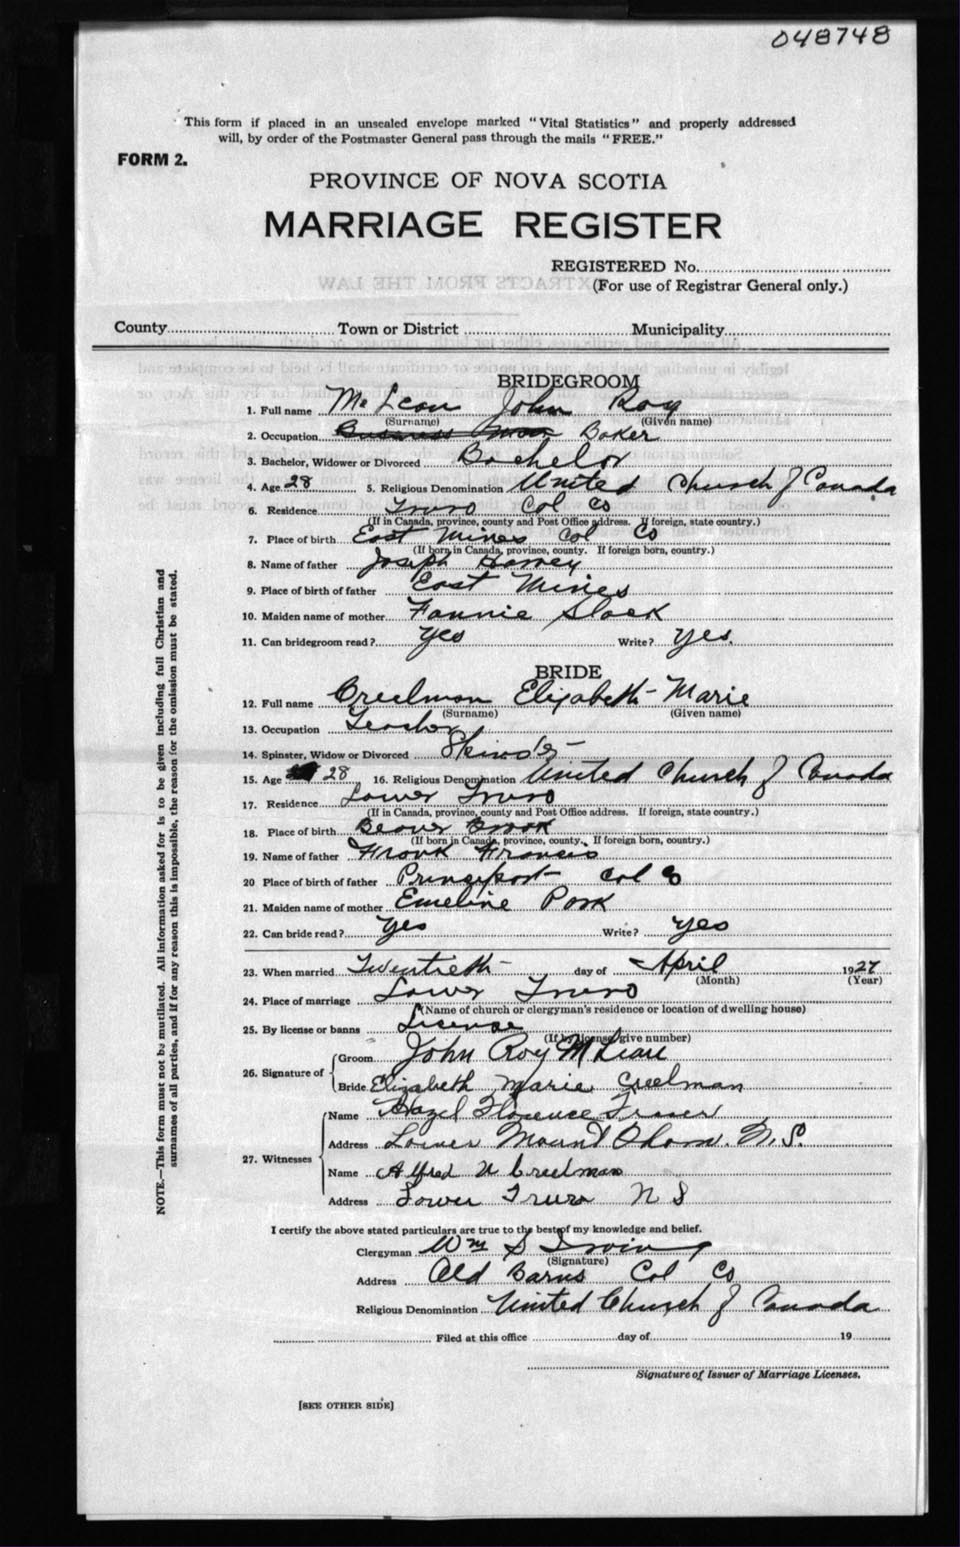 048748
This form if placed in an unsealed envelope marked "Vital Statistics" and properly addressed
will, by order of the Postmaster General pass through the mails "FREE."
FORM 2.
PROVINCE OF NOVA SCOTIA
MARRIAGE REGISTER
REGISTERED No.
(For use of Registrar General only.)
County Town or District Municipality
BRIDEGROOM
1. Full name McLean John Roy
(Surname) (Given name)
2. Occupation Baker
3. Bachelor, Widower or Divorced Bachelor
4. Age 28 5. Religious Denomination United Church of Canada
6. Residence Truro Col Co
(If in Canada, province, county and Post Office address. If foreign, state country.)
7. Place of birth East Mines Col Co
(If born in Canada, province, county. If foreign born, country.)
8. Name of father Joseph Harvey
9. Place of birth of father East Mines
10. Maiden name of mother Fannie Slack
11. Can bridegroom read? Yes Write? Yes.
BRIDE
12. Full name Creelman Elizabeth Marie
(Surname) (Given name)
13. Occupation Teacher
14. Spinster, Widow or Divorced
15. Age 28 16. Religious Denomination United Church of Canada
17. Residence Lower Truro
(If in Canada, province, county and Post Office address. If foreign, state country.)
18. Place of birth Beaver Brook
(If born in Canada, province, county. If foreign born, country.)
19. Name of father Frank Francis
20 Place of birth of father Princeport Col Co
21. Maiden name of mother Emeline Pook
22. Can bride read? Yes Write? Yes
23. When married Twentieth day of April 1927
(Month) (Year)
24. Place of marriage Lower Truro
(Name of church or clergyman's residence or location of dwelling house)
25. By license or banns License
(If by license, give number)
26. Signature of Groom John Roy McLean
Bride Elizabeth Marie Creelman
27. Witnesses Name Hazel Florence Fraser
Address Lower Mount Thom. N.S.
Name Alfred W Creelman
Address Lower Truro N S
I certify the above stated particulars are true to the best of my knowledge and belief.
Clergyman Wm S Irving
(Signature)
Address Old Barns Col Co
Religious Denomination United Church of Canada
Filed at this office day of 19
Signature of Issuer of Marriage Licenses.
[SEE OTHER SIDE]
NOTE.—This form must not be mutilated. All information asked for is to be given including full Christian and
surnames of all parties, and if for any reason this is impossible, the reason for the omission must be stated.